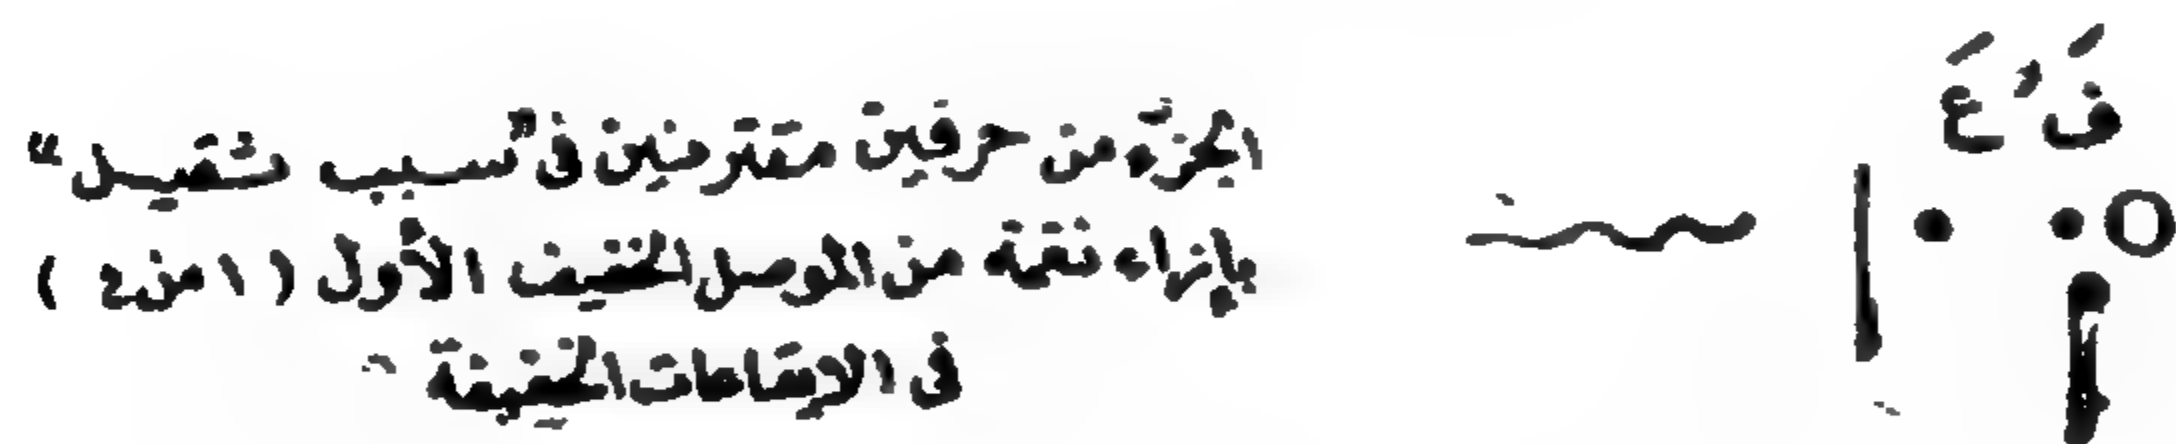 فَ عَ
الجزء من حرفين مقترنين فى "سبب ثقيل"
بإزاء نقمة من الموصل الخفيف الأول ( ١ من ٤ )
فى الإيقاعات الخفيفة